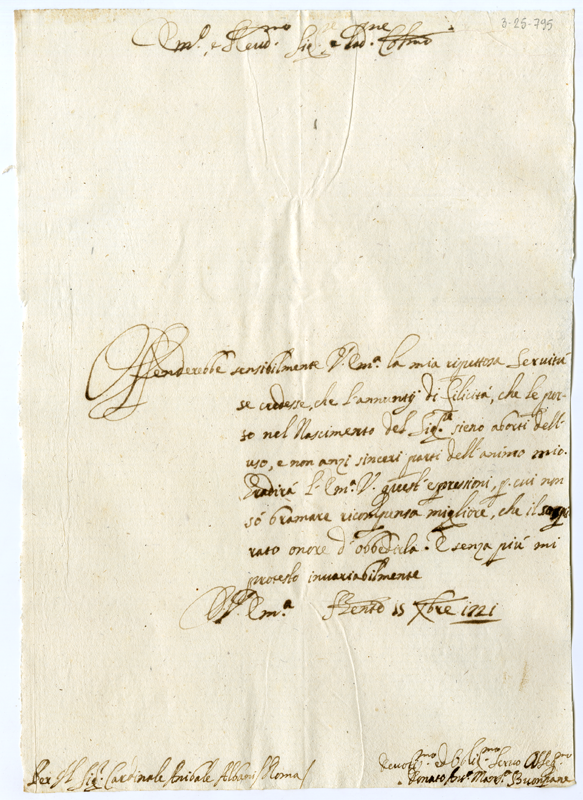 3-25-795
Em.º, e Reud.mo Sig.re e Pad.ne Colmo
Offenderebbe sensibilmente V. Em.ª la mia rispettosa servitù
se credesse, che l'annuntij di Felicità, che le por-
to nel Nascimento del Sig.re sieno aborti dell'
uso, e non anzi sinceri parti dell'animo mio.
Gradirà l'Em.ª V. quest'espressioni, p. cui non
sò bramare ricompensa migliore, che il
rato onore d'obbedirla. E senza più mi
protesto invariabilmente
D. V. Em.ª 15 Xbre 1721
Per Sig.r Cardinale Anibale Albani Roma
Deuot.mo ed Obblig.mo Seruo
Donato Ant.º Mar.